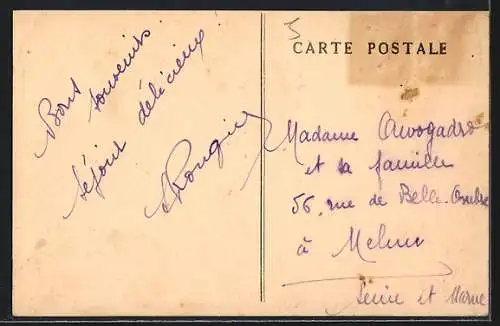 Bons souvenirs
séjour délicieux!
CARTE POSTALE
Madame Avogadro
et sa famille
56, rue de Belle-Ombre
à Melun
Seine et Marne